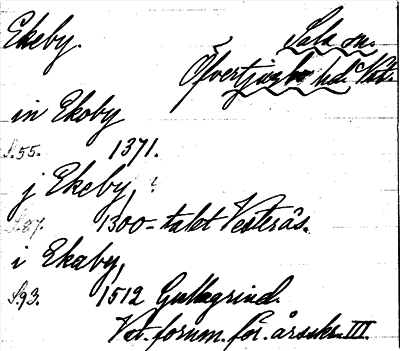 Ekeby.
Sala sn.
Öfvertjurbo hd. Vstm.
in Ekoby
S. 55. 1371.
j Ekeby,
S. 87. 1300-talet Vesterås.
i Ekaby,
S. 93. 1512 Gullagrind.
Vet. forum. för. årsskr. III.